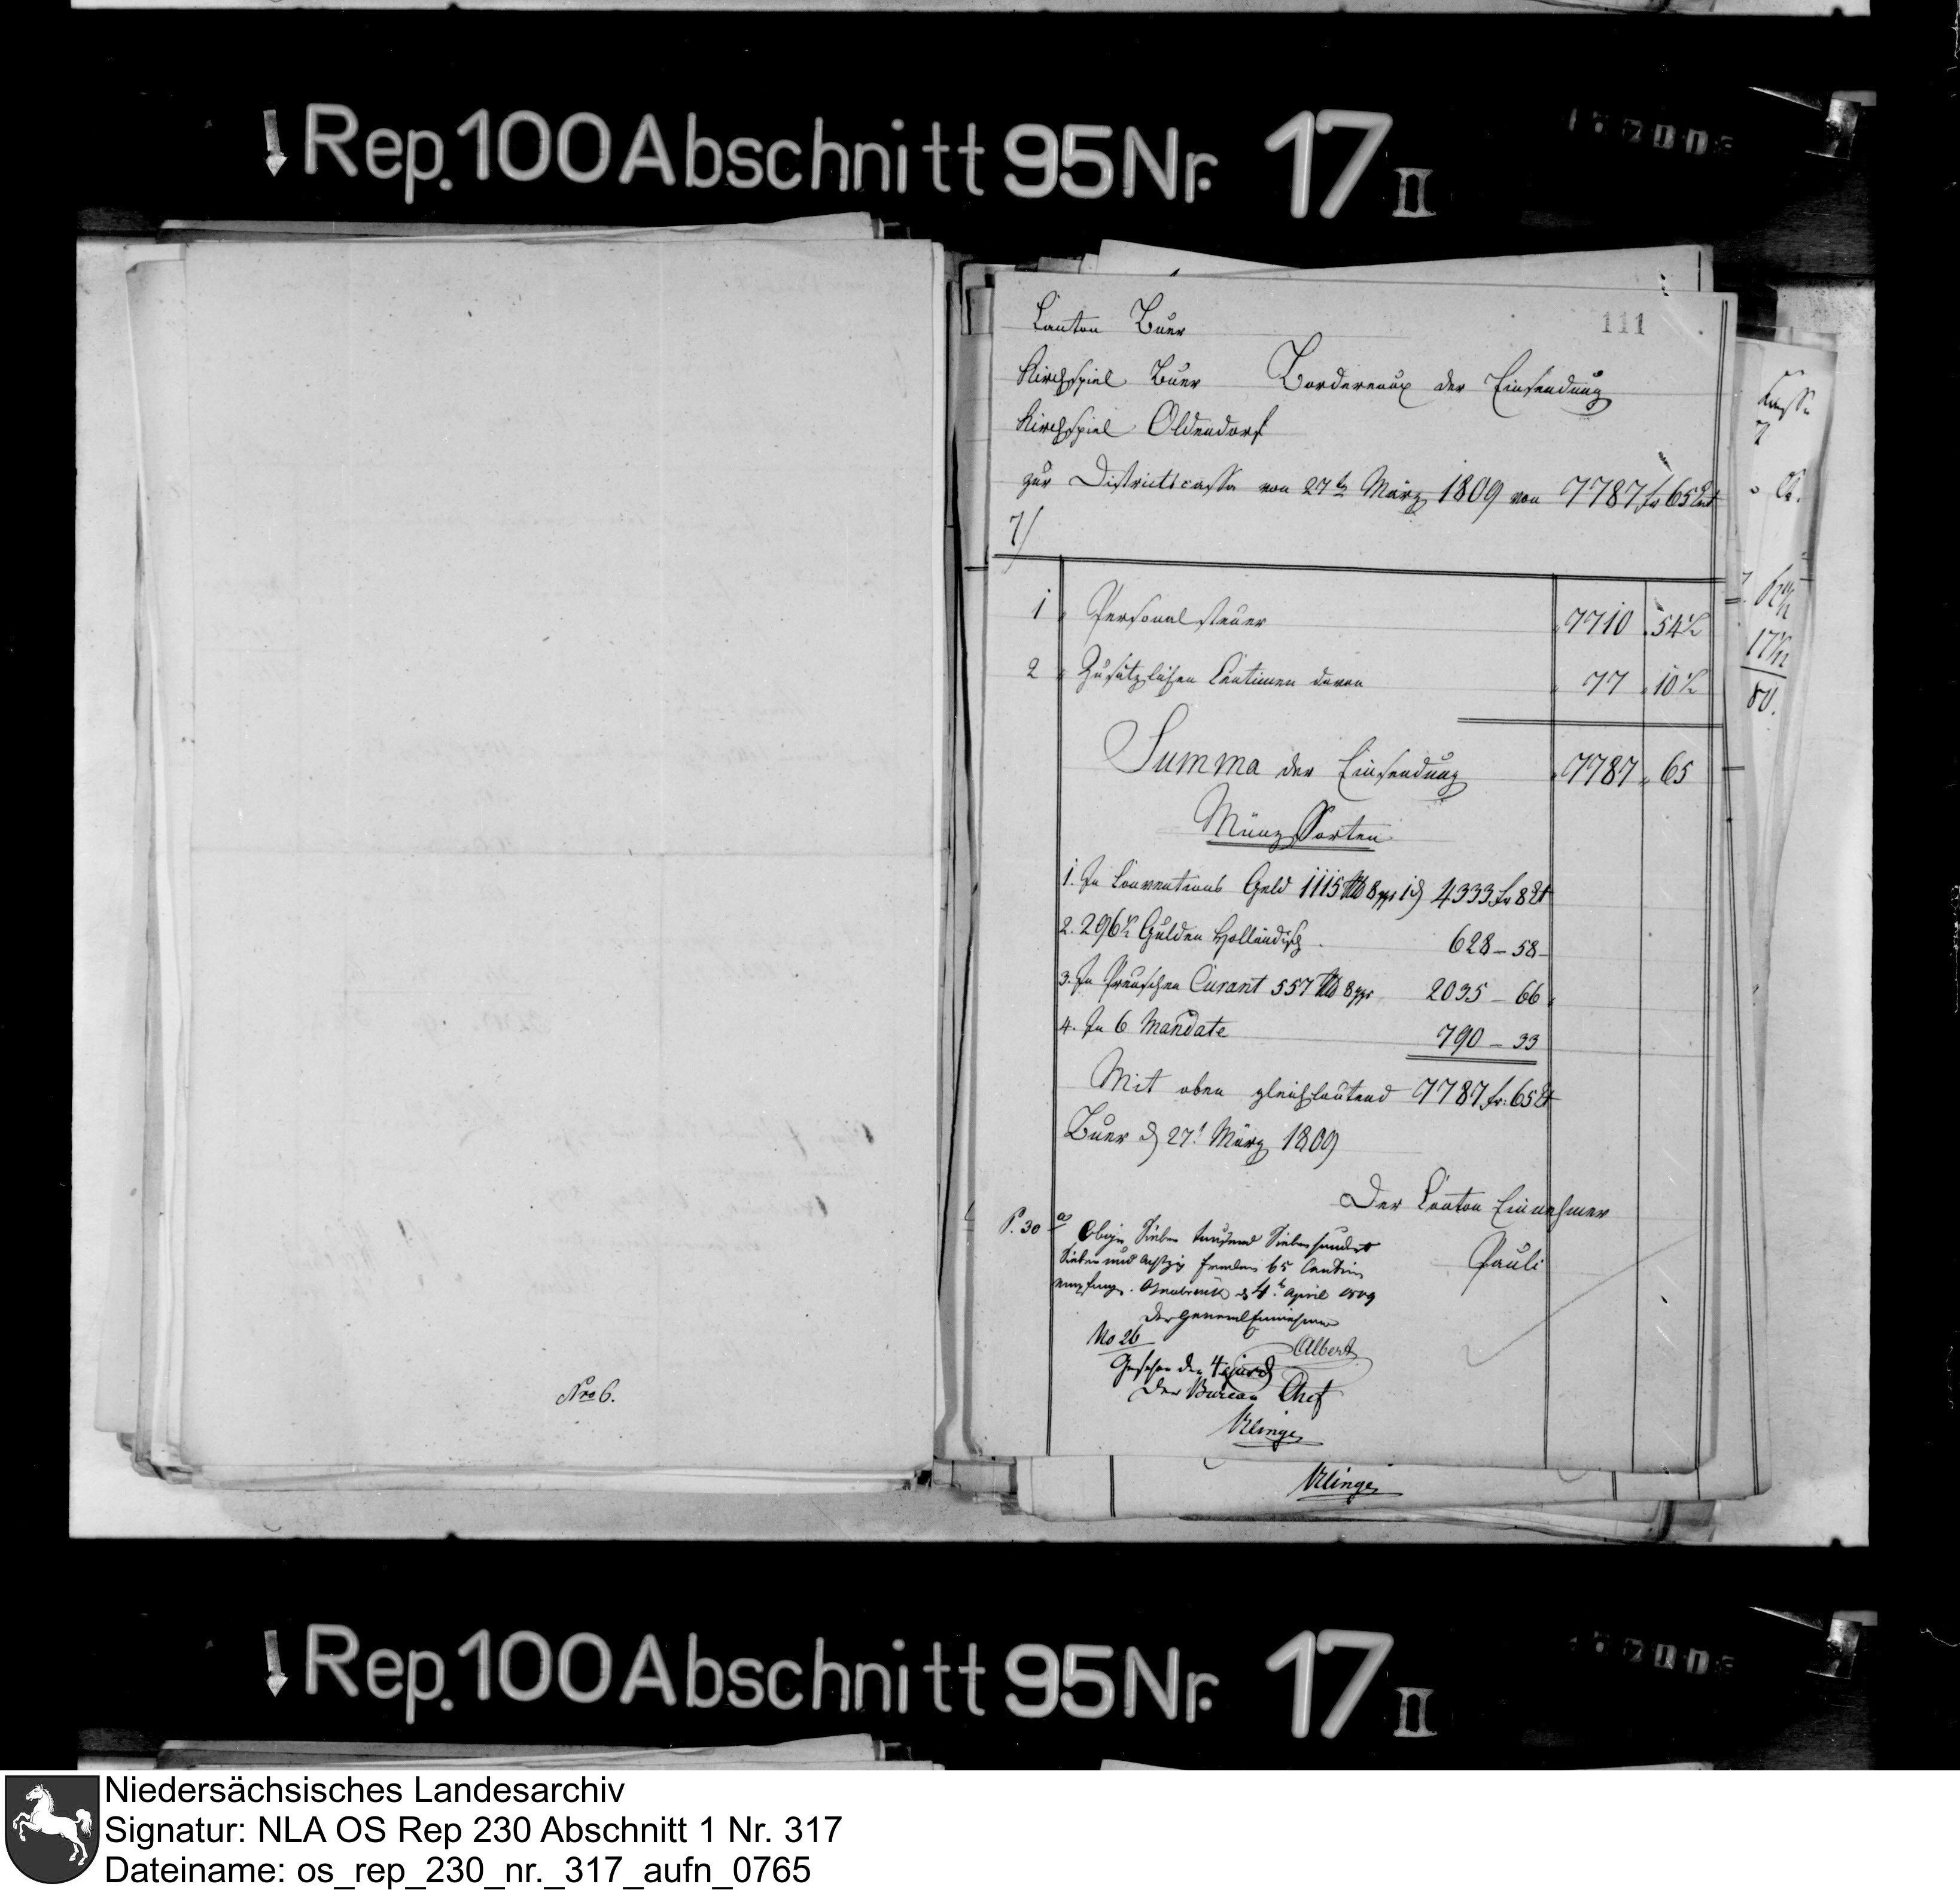 Rep. 100 Abschnitt 95 Nr. 17 II
111
Canton Buer
Kirchspiel Buer Bordereaux der Einsendung
Kirchspiel Oldendorf
zur Districtscassa von 27t März 1809 von 7787 fr 65 Ct
7/
1 Personalsteuer 7710 54 1/2
2 Zusätzlichen Centimen davon 77 10 1/2
Summa der Einsendung 7787 65
Münz Sorten
1. In Conventions Geld 1115 Rtl 8 ggr 1 d 4333 fr 8 Ct
2. 296 1/2 Gulden Holländisch 628 - 58 -
3. In Preuschen Curant 557 Rtl 8 ggr 2035 - 66
4. In 6 Mandate 790 - 33
Mit oben gleichlautend 7787 fr. 65 Ct
Buer d 27t März 1809
Der Canton Einnehmer
Pauli
P. 30
Obige Sieben tausend Siebenhundert
Sieben und Achtzig Franken 65 Centim
empfangen. Osnabrück d 4t April 1809
Der General Einnehmer
Albert
No 26
Gesehen den 4
Der Bureau Chef
Klinge
Klinge
Nro 6.
Rep. 100 Abschnitt 95 Nr. 17 II
Niedersächsisches Landesarchiv
Signatur: NLA OS Rep 230 Abschnitt 1 Nr. 317
Dateiname: os_rep_230_nr._317_aufn_0765